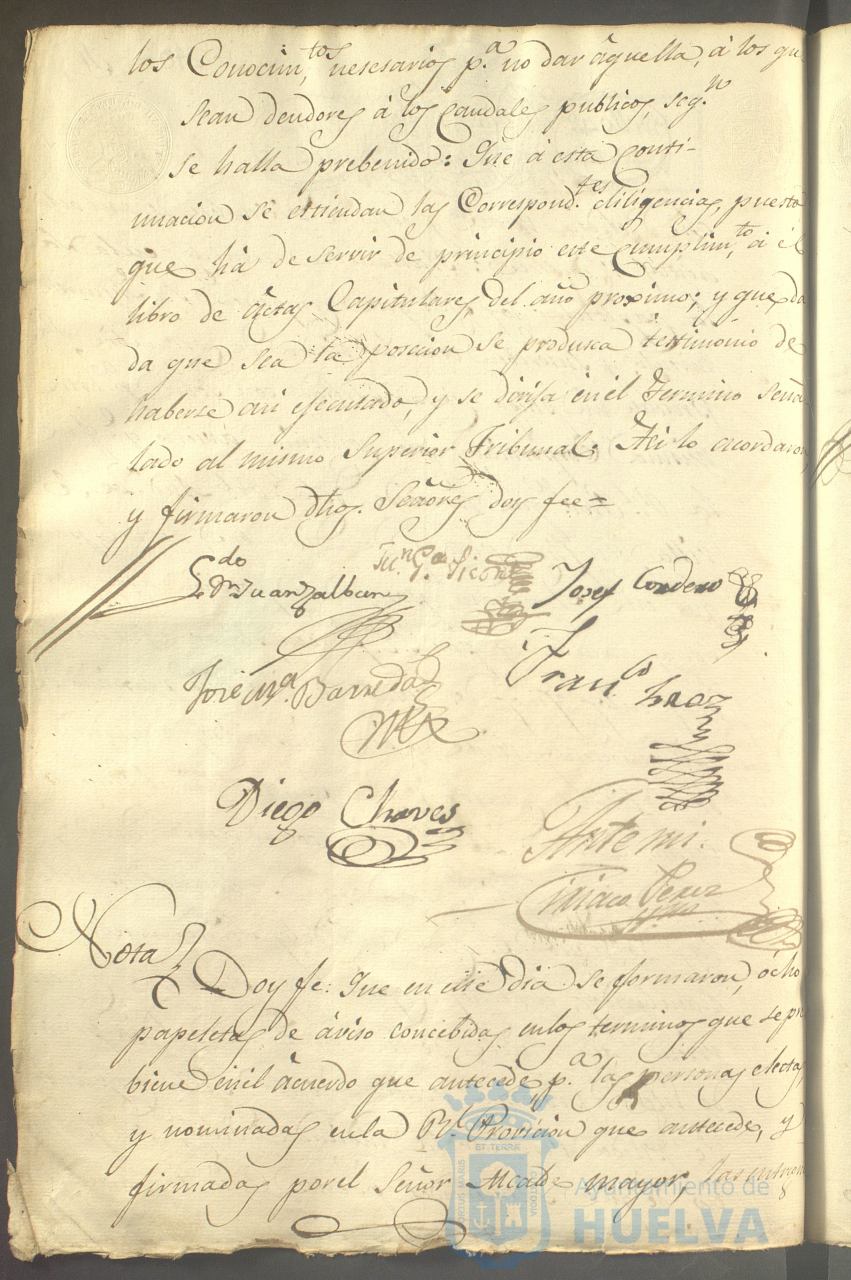 los Conocim.tos nesesarios p.a no dar âquella, â los que
sean deudores â los Caudales publicos, seg.n
se halla prebenido: Que â esta Conti-
nuacion se estiendan las Correspond.tes diligencias, puesto
que hâ de servir de principio este Cumplim.to â êl
libro de âctas Capitulares del año proximo; y que da
da que sea la posecion se produsca testimonio de
haberse asi ejecutado, y se dirija en el Termino seña
lado al mismo Superior Tribunal. Asi lo acordaron,
y firmaron dhos. Señores doy fee=
L.do D.n Juan
Josef Cordero
Jose M.a Barreda
Fran.co
Diego Chaves
Antemi.
Ciriaco Perez
Nota
Doy fe: Que en este dia se formaron, ocho
papeletas de âviso concebidas en los terminos que se pre
biene en el âcuerdo que antecede, p.a las personas electas,
y nominadas en la R.l Provicion que antecede, y
firmadas por el Señor Alcalde mayor las
Ayuntamiento de
HUELVA